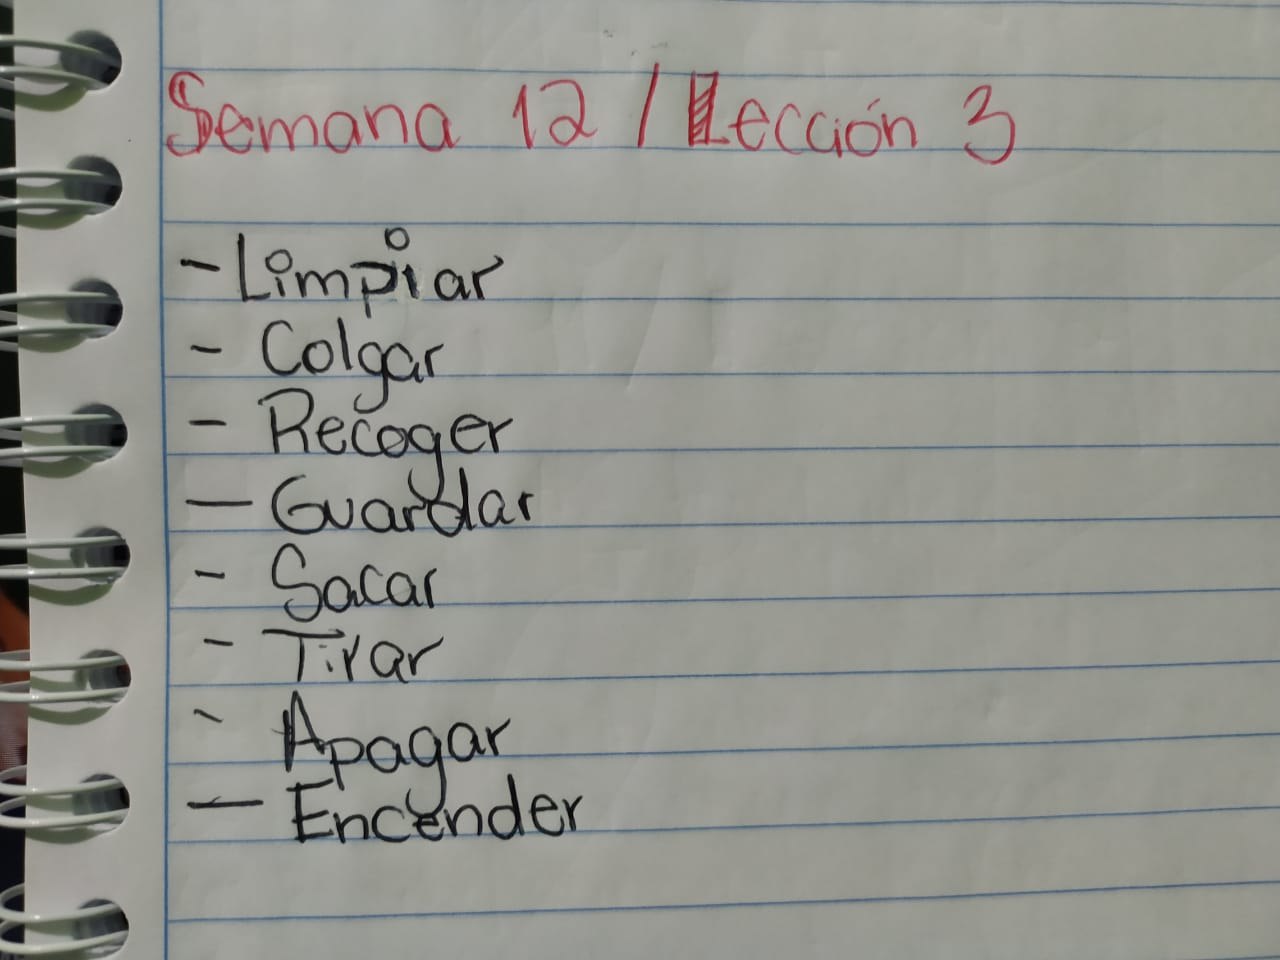 Semana 12 / Lección 3
- Limpiar
- Colgar
- Recoger
- Guardar
- Sacar
- Tirar
- Apagar
- Encender